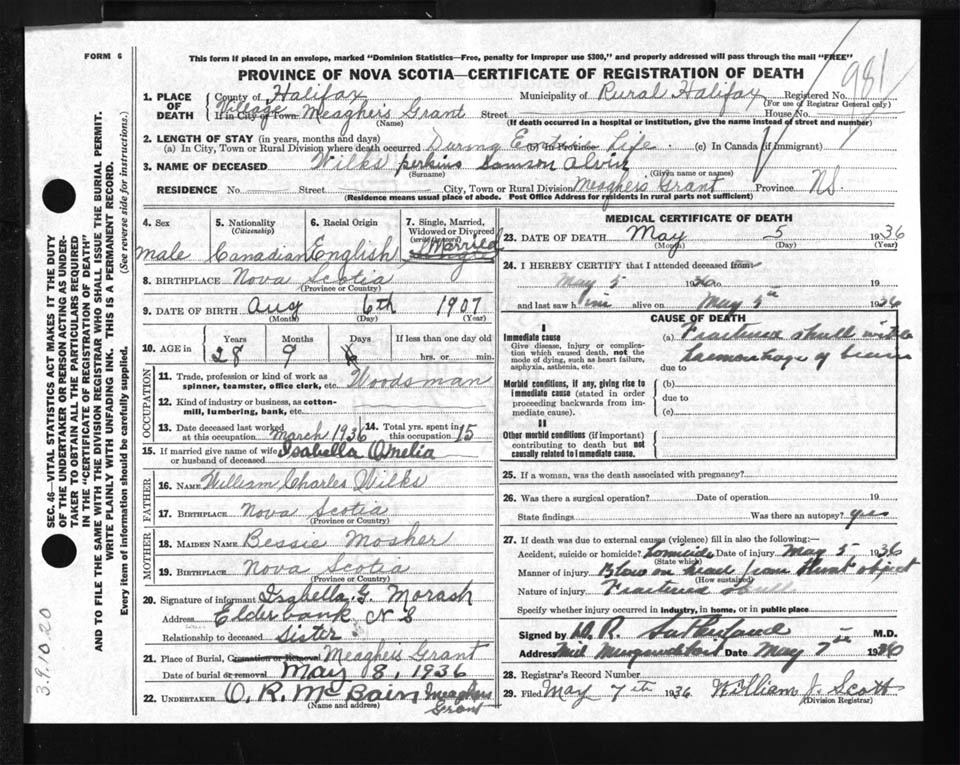 FORM 6
This form if placed in an envelope, marked "Dominion Statistics—Free, penalty for improper use $300," and properly addressed will pass through the mail "FREE"
PROVINCE OF NOVA SCOTIA—CERTIFICATE OF REGISTRATION OF DEATH
981
1. PLACE OF DEATH
County of Halifax Municipality of Rural Halifax Registered No.
(For use of Registrar General only)
Village
If in City or Town Meaghers Grant Street House No.
(Name) (If death occurred in a hospital or institution, give the name instead of street and number)
2. LENGTH OF STAY (in years, months and days)
(a) In City, Town or Rural Division where death occurred During Entire Life (b) In Province (c) In Canada (if immigrant)
3. NAME OF DECEASED Wilks perkins Samson Alvin
(Surname) (Given name or names)
RESIDENCE No. Street City, Town or Rural Division Meaghers Grant Province NS.
(Residence means usual place of abode. Post Office Address for residents in rural parts not sufficient)
4. Sex
male
5. Nationality
(Citizenship)
Canadian
6. Racial Origin
English
7. Single, Married, Widowed or Divorced
(write the word)
Married
8. BIRTHPLACE Nova Scotia
(Province or Country)
9. DATE OF BIRTH Aug 6th 1907
(Month) (Day) (Year)
10. AGE in
Years Months Days If less than one day old
28 9 hrs. or min.
OCCUPATION
11. Trade, profession or kind of work as spinner, teamster, office clerk, etc. Woodsman
12. Kind of industry or business, as cotton-mill, lumbering, bank, etc.
13. Date deceased last worked at this occupation March 1936
14. Total yrs. spent in this occupation 15
15. If married give name of wife or husband of deceased Isabella Amelia
FATHER
16. NAME William Charles Wilks
17. BIRTHPLACE Nova Scotia
(Province or Country)
MOTHER
18. MAIDEN NAME Bessie Mosher
19. BIRTHPLACE Nova Scotia
(Province or Country)
20. Signature of informant Isabella G. Morash
Address Elderbank N S
Relationship to deceased Sister
21. Place of Burial, Cremation or Removal Meaghers Grant
Date of burial or removal May 8, 1936
22. UNDERTAKER O. R. McBain Meaghers Grant
(Name and address)
MEDICAL CERTIFICATE OF DEATH
23. DATE OF DEATH May 5 1936
(Month) (Day) (Year)
24. I HEREBY CERTIFY that I attended deceased from
May 5 1936 to 19
and last saw him alive on May 5th 1936
CAUSE OF DEATH
I
Immediate cause
Give disease, injury or complication which caused death, not the mode of dying, such as heart failure, asphyxia, asthenia, etc.
(a) Fractured skull with
haemorrhage of brain
due to
Morbid conditions, if any, giving rise to immediate cause (stated in order proceeding backwards from immediate cause).
(b)
due to
(c)
II
Other morbid conditions (if important) contributing to death but not causally related to immediate cause.
25. If a woman, was the death associated with pregnancy?
26. Was there a surgical operation? Date of operation 19
State findings Was there an autopsy? yes
27. If death was due to external causes (violence) fill in also the following:
Accident, suicide or homicide? homicide Date of injury May 5 1936
(State which)
Manner of injury Blow on head from blunt object
(How sustained)
Nature of injury Fractured skull
Specify whether injury occurred in industry, in home, or in public place
Signed by D. R. Sutherland M.D.
Address Mid Musquodoboit Date May 7th 1936
28. Registrar's Record Number
29. Filed May 7th 1936 William J. Scott
(Division Registrar)
SEC. 46—VITAL STATISTICS ACT MAKES IT THE DUTY
OF THE UNDERTAKER OR PERSON ACTING AS UNDER-
TAKER TO OBTAIN ALL THE PARTICULARS REQUIRED
IN THE "CERTIFICATE OF REGISTRATION OF DEATH"
AND TO FILE THE SAME WITH THE DIVISION REGISTRAR WHO SHALL ISSUE THE BURIAL PERMIT.
WRITE PLAINLY WITH UNFADING INK. THIS IS A PERMANENT RECORD.
Every item of information should be carefully supplied. (See reverse side for instructions.)
3.9.10.20